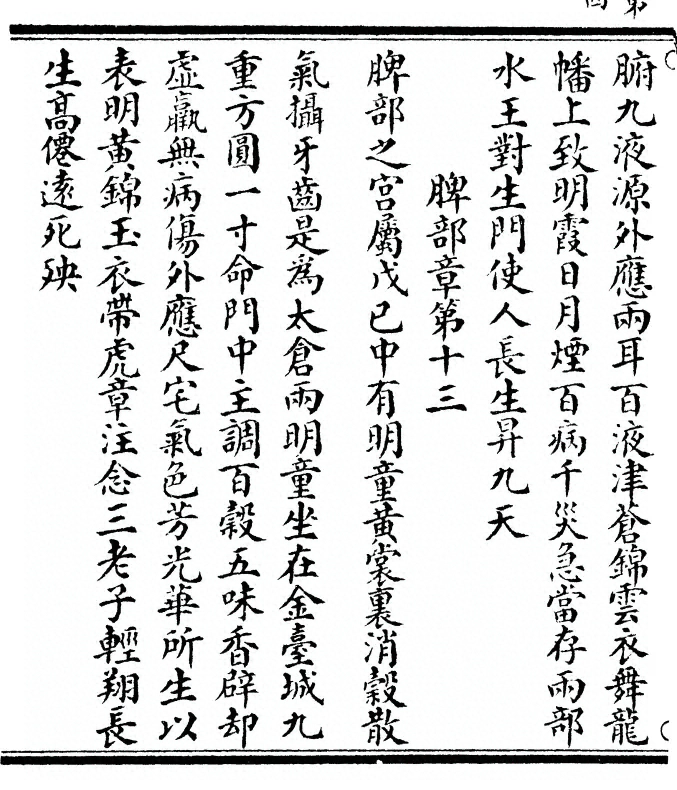 腑九液源外應兩耳百液津蒼錦雲衣舞龍
幡上致明霞日月煙百病千災急當存兩部
水王對生門使人長生昇九天
脾部章第十三
脾部之宮屬戊己中有明童黃裳裏消穀散
氣攝牙齒是為太倉兩明童坐在金臺城九
重方圓一寸命門中主調百穀五味香辟却
虛羸無病傷外應尺宅氣色芳光華所生以
表明黃錦玉衣帶虎章注念三老子輕翔長
生高僊遠死殃